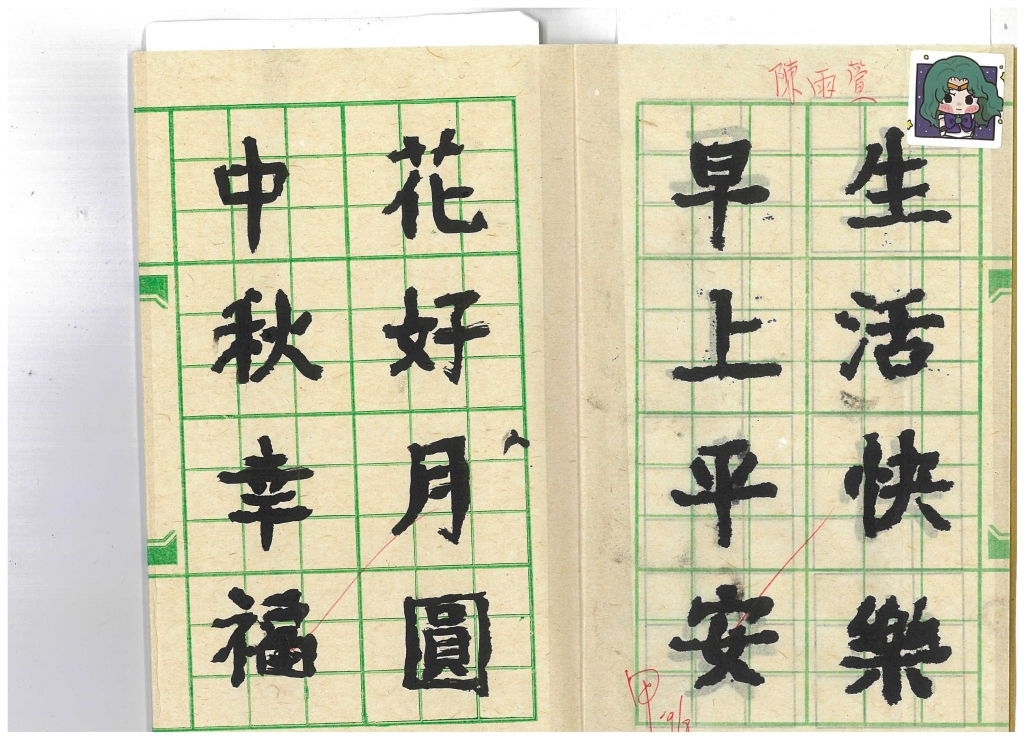 陳雨萱
生活快樂
早上平安
花好月圓
中秋幸福
甲